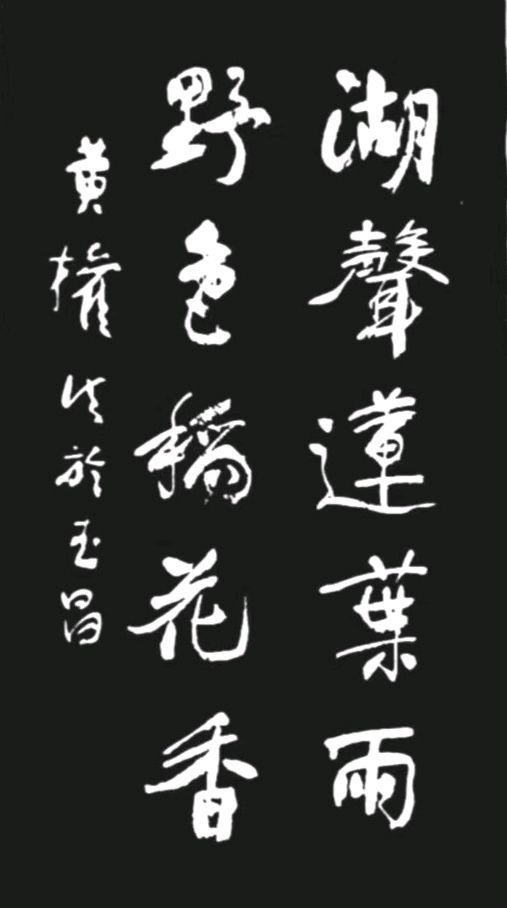 湖聲蓮葉雨
野色稻花香
黄權 於玉昌